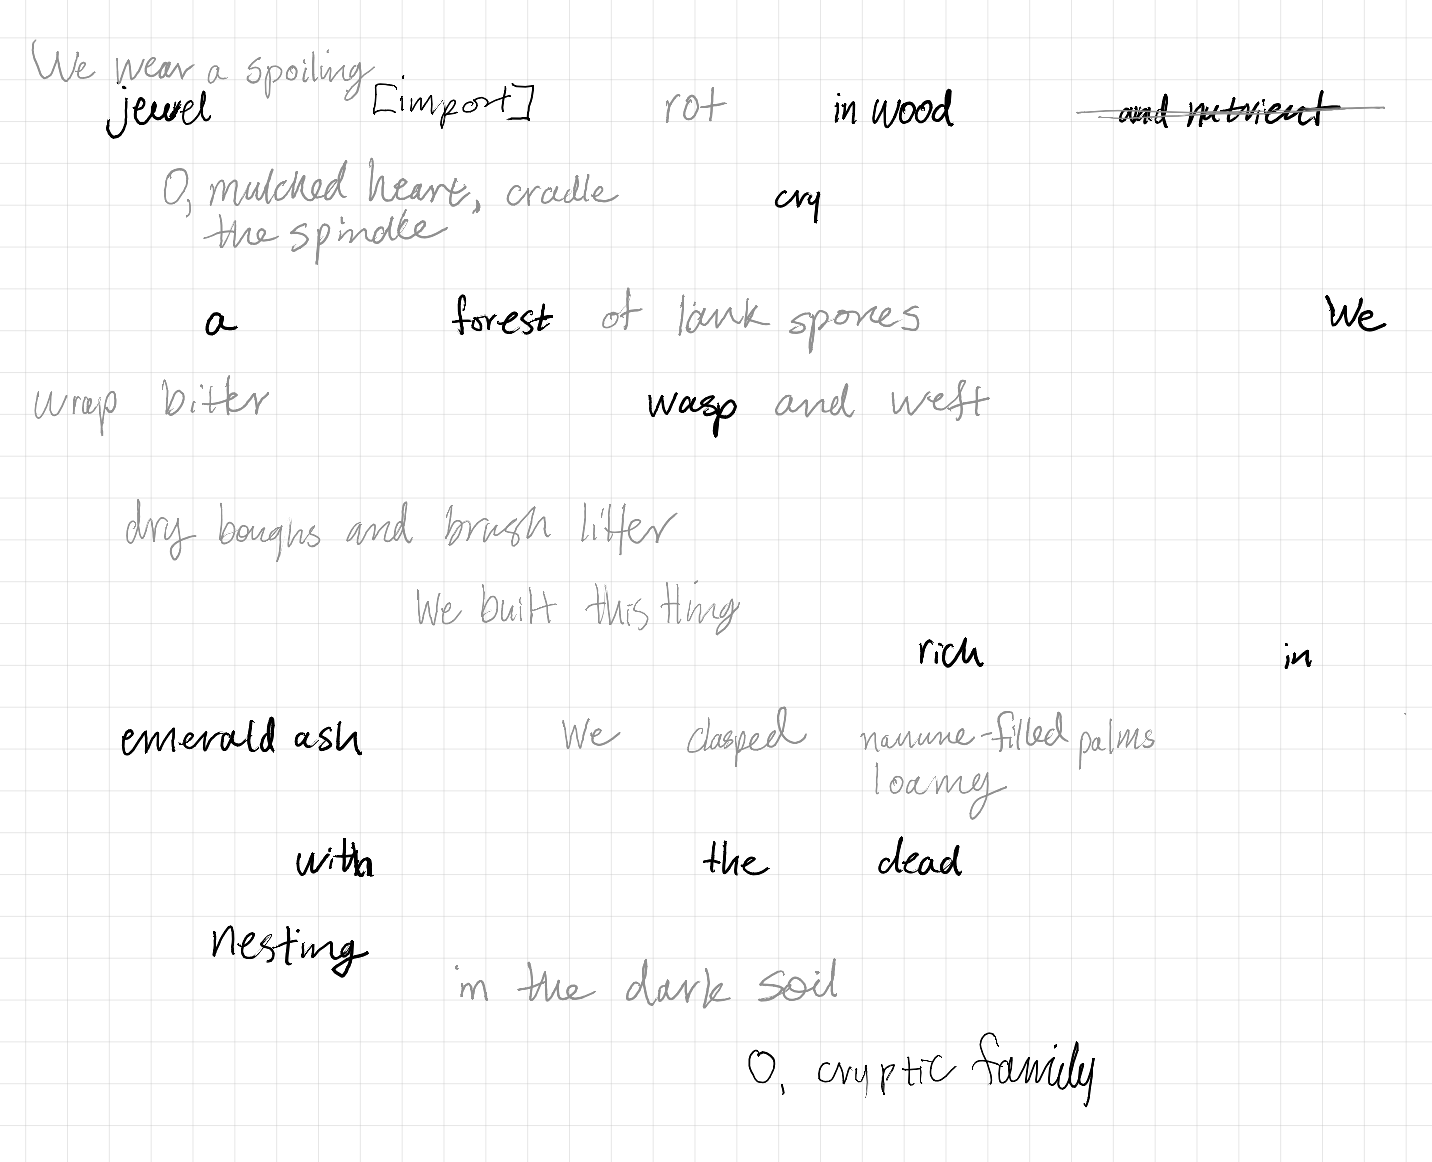 We wear a spoiling
jewel [import] rot in wood and nutrient
O, mulched heart, cradle cry
the spindle
a forest of lank spores We
wrap bitter wasp and weft
dry boughs and brush litter
We built this thing
rich in
emerald ash We clasped -filled palms
loamy
with the dead
nesting
in the dark soil
O, cryptic family